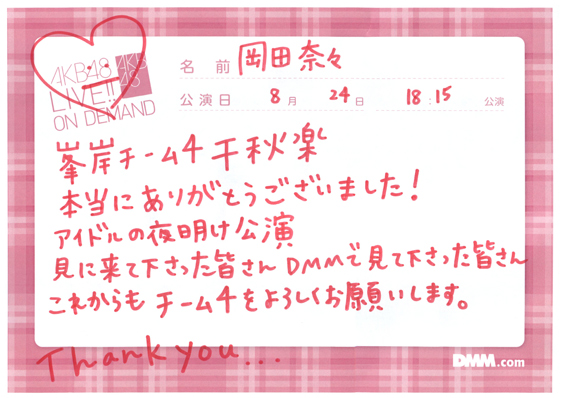 AKB48
LIVE!!
ON DEMAND
AKB
48
名前 岡田奈々
公演日 8月 24日 18:15 公演
峯岸チーム4千秋楽
本当にありがとうございました!
アイドルの夜明け公演
見に来て下さった皆さん DMMで見て下さった皆さん
これからも チーム4をよろしくお願いします。
Thank you...
DMM.com